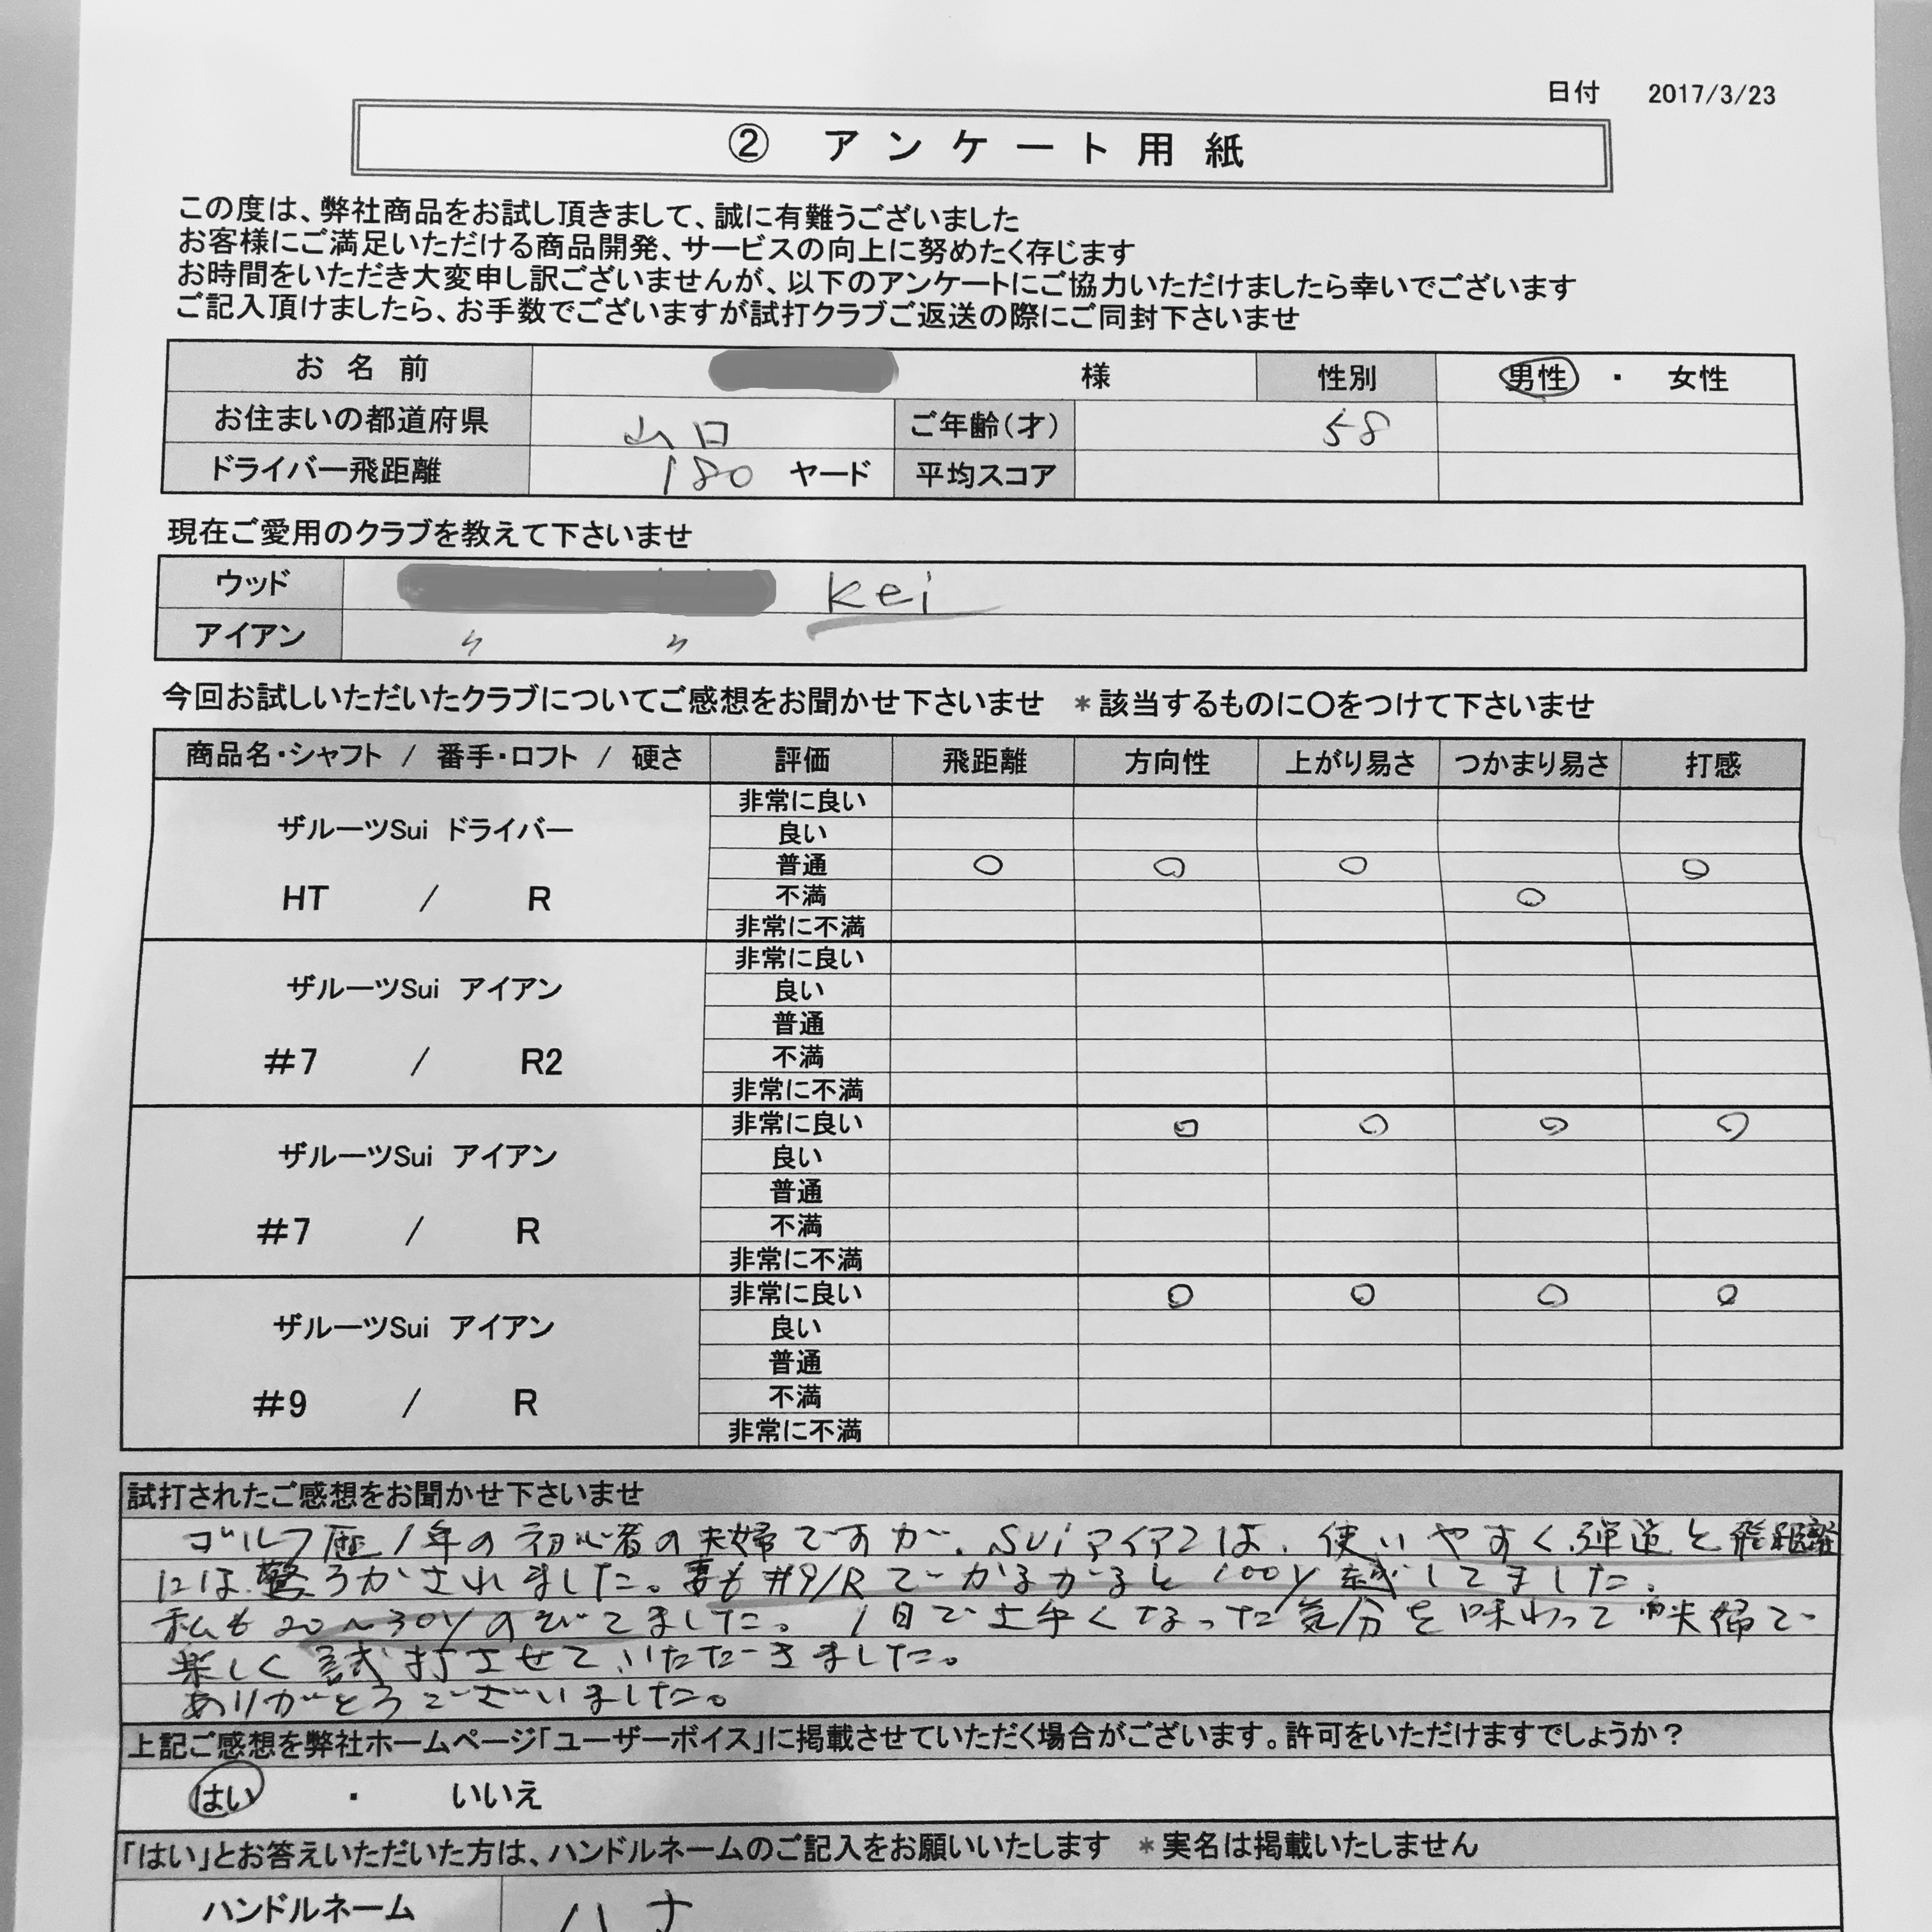 日付 2017/3/23
② アンケート用紙
この度は、弊社商品をお試し頂きまして、誠に有難うございました
お客様にご満足いただける商品開発、サービスの向上に努めたく存じます
お時間をいただき大変申し訳ございませんが、以下のアンケートにご協力いただけましたら幸いでございます
ご記入頂けましたら、お手数でございますが試打クラブご返送の際にご同封下さいませ
お名前 様 性別 男性 ・ 女性
お住まいの都道府県 山口 ご年齢(才) 58
ドライバー飛距離 180 ヤード 平均スコア
現在ご愛用のクラブを教えて下さいませ
ウッド Kei
アイアン 〃 〃
今回お試しいただいたクラブについてご感想をお聞かせ下さいませ *該当するものに〇をつけて下さいませ
商品名・シャフト / 番手・ロフト / 硬さ 評価 飛距離 方向性 上がり易さ つかまり易さ 打感
ザルーツSui ドライバー
HT / R
非常に良い
良い
普通 〇 〇 〇 〇
不満 〇
非常に不満
ザルーツSui アイアン
#7 / R2
非常に良い
良い
普通
不満
非常に不満
ザルーツSui アイアン
#7 / R
非常に良い 〇 〇 〇 〇
良い
普通
不満
非常に不満
ザルーツSui アイアン
#9 / R
非常に良い 〇 〇 〇 〇
良い
普通
不満
非常に不満
試打されたご感想をお聞かせ下さいませ
ゴルフ歴1年の初心者の夫婦ですが、Suiアイアンは、使いやすく弾道と飛距離
には驚ろかされました。妻も#9/Rでかるがると100Y越してました。
私も20〜30Yのびてました。1日で上手くなった気分を味わって夫婦で
楽しく試打させていただきました。
ありがとうございました。
上記ご感想を弊社ホームページ「ユーザーボイス」に掲載させていただく場合がございます。許可をいただけますでしょうか？
はい ・ いいえ
「はい」とお答えいただいた方は、ハンドルネームのご記入をお願いいたします *実名は掲載いたしません
ハンドルネーム ハナ